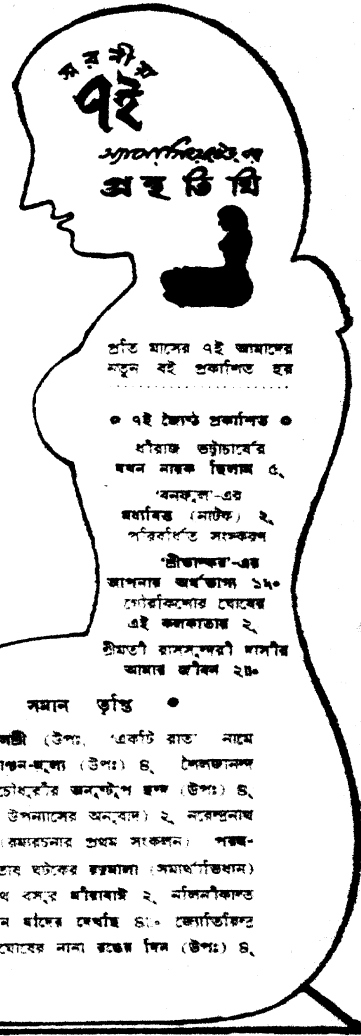 স্মরণীয়
৭ই
অ্যাসোসিয়েটেড-এর
গ্রন্থতিথি
প্রতি মাসের ৭ই আমাদের
নতুন বই প্রকাশিত হয়
● ৭ই জ্যৈষ্ঠ প্রকাশিত ●
ধীরাজ ভট্টাচার্যের
যখন নায়ক ছিলাম ৫৲
'বনফুল'-এর
মধ্যবিত্ত (নাটক) ২৲
পরিবর্ধিত সংস্করণ
'শ্রীভাস্কর'-এর
আপনার অর্থভাগ্য ১৸০
গৌরকিশোর ঘোষের
এই কলকাতায় ২৲
শ্রীমতী রাসসুন্দরী দাসীর
আমার জীবন ২॥০
সমান তৃপ্তি ●
(উপঃ, 'একটি রাত' নামে
ঞ্চন-মূল্য (উপঃ) ৪৲ শৈলজানন্দ
চৌধুরীর অনুষ্টুপ ছন্দ (উপঃ) ৪৲
উপন্যাসের অনুবাদ) ২৲ নরেন্দ্রনাথ
(রম্যরচনার প্রথম সংকলন) পরশু-
তোষ ঘটকের রত্নমালা (সমার্থাভিধান)
থ বসুর মীরাবাঈ ২৲ নলিনীকান্ত
ন যাঁদের দেখছি ৪॥০ জ্যোতিরিন্দ্র
ঘোষের নানা রঙের দিন (উপঃ) ৪৲